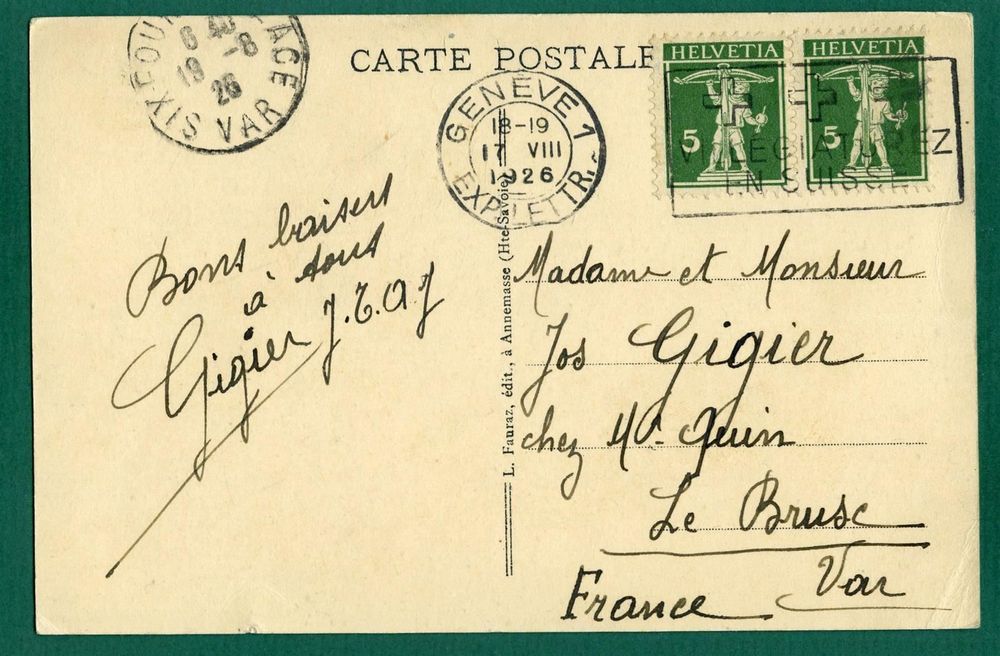 CARTE POSTALE
SIX-FOUR PLAGE
6 40
19 -8
26
VAR
GENÈVE 1
18-19
17 VIII
1926
EXP. LETTR.
HELVETIA
5
HELVETIA
5
VILLÉGIATUREZ
EN SUISSE
Bons baisers
à tous
Gigier J.T.A.J
L. Fauraz, édit., à Annemasse (Hte-Savoie)
Madame et Monsieur
Jos Gigier
chez Mr. Guin
Le Brusc
Var
France